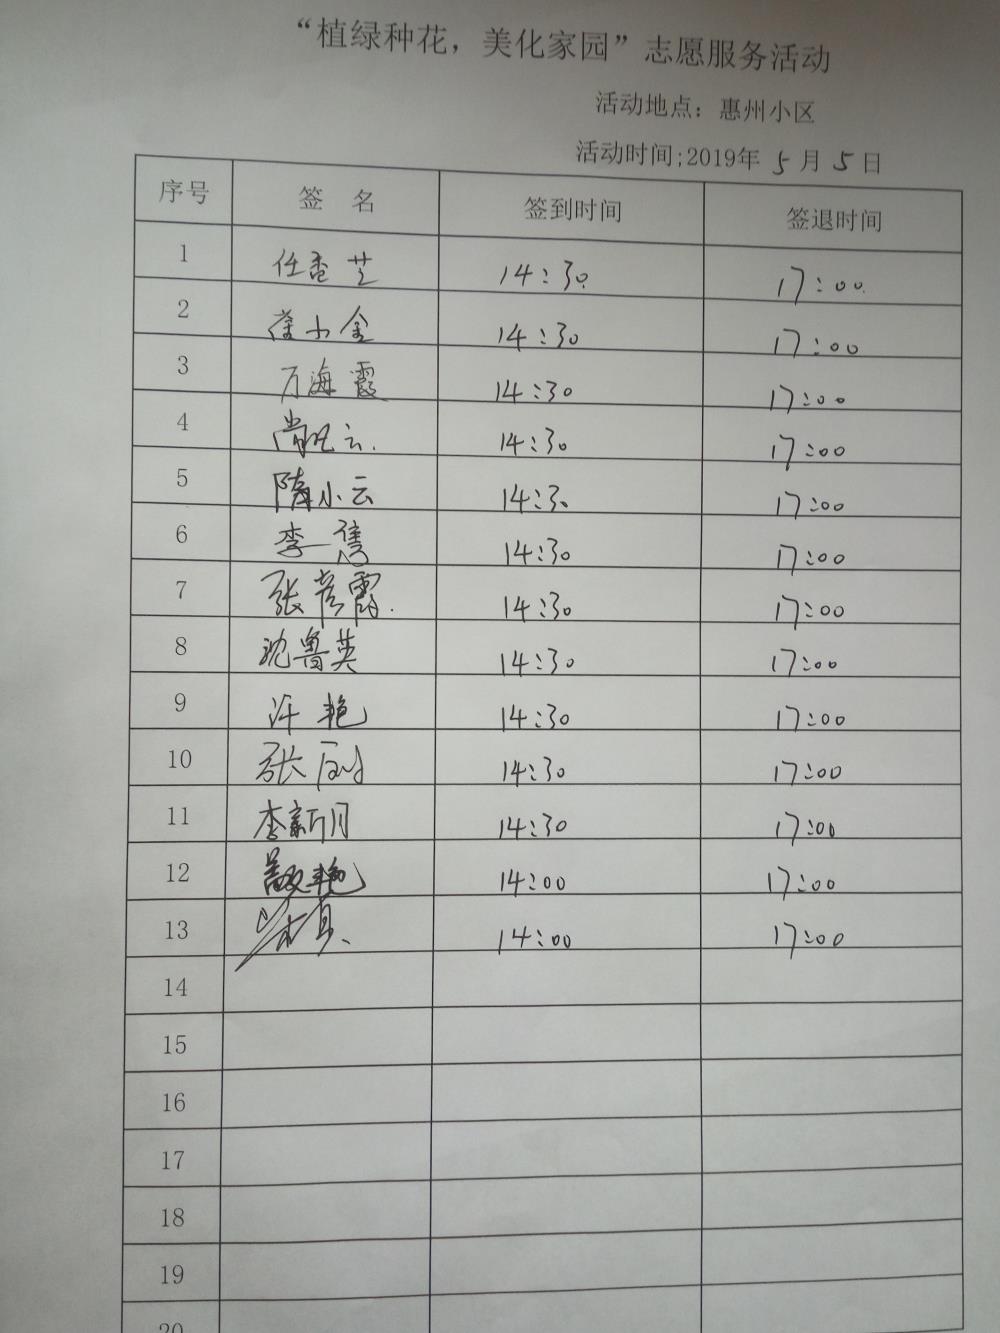 “植绿种花，美化家园”志愿服务活动
活动地点：惠州小区
活动时间;2019年5月5日
序号 签 名 签到时间 签退时间
1 任香芝 14:30. 17:00.
2 小金 14:30 17:00
3 万海霞 14:30 17:00
4 尚 云. 14:30 17:00
5 隋小云 14:30 17:00
6 李隽 14:30 17:00
7 张彦霞. 14:30 17:00
8 沈鲁英 14:30 17:00
9 许艳 14:30 17:00
10 张 14:30 17:00
11 李新月 14:30 17:00
12 艳 14:00 17:00
13 14:00 17:00
14
15
16
17
18
19
20